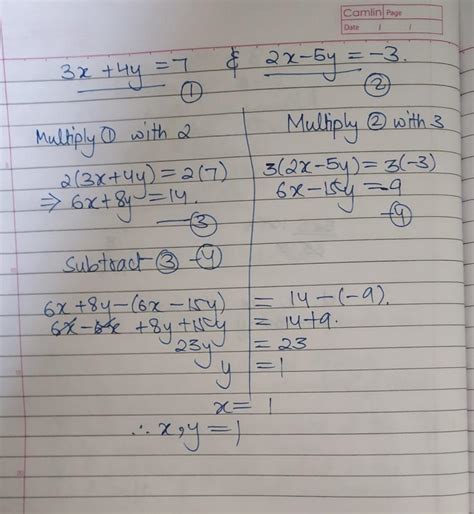 Camlin Page
Date / /
3x + 4y = 7 & 2x - 5y = -3.
① ②
Multiply ① with 2
2(3x+4y) = 2(7)
⇒ 6x + 8y = 14.
— ③
Multiply ② with 3
3(2x-5y) = 3(-3)
6x - 15y = -9
- ④
Subtract ③ - ④
6x + 8y - (6x - 15y) = 14 - (-9).
6x - 6x + 8y + 15y = 14 + 9.
23y = 23
y = 1
x = 1
∴ x, y = 1